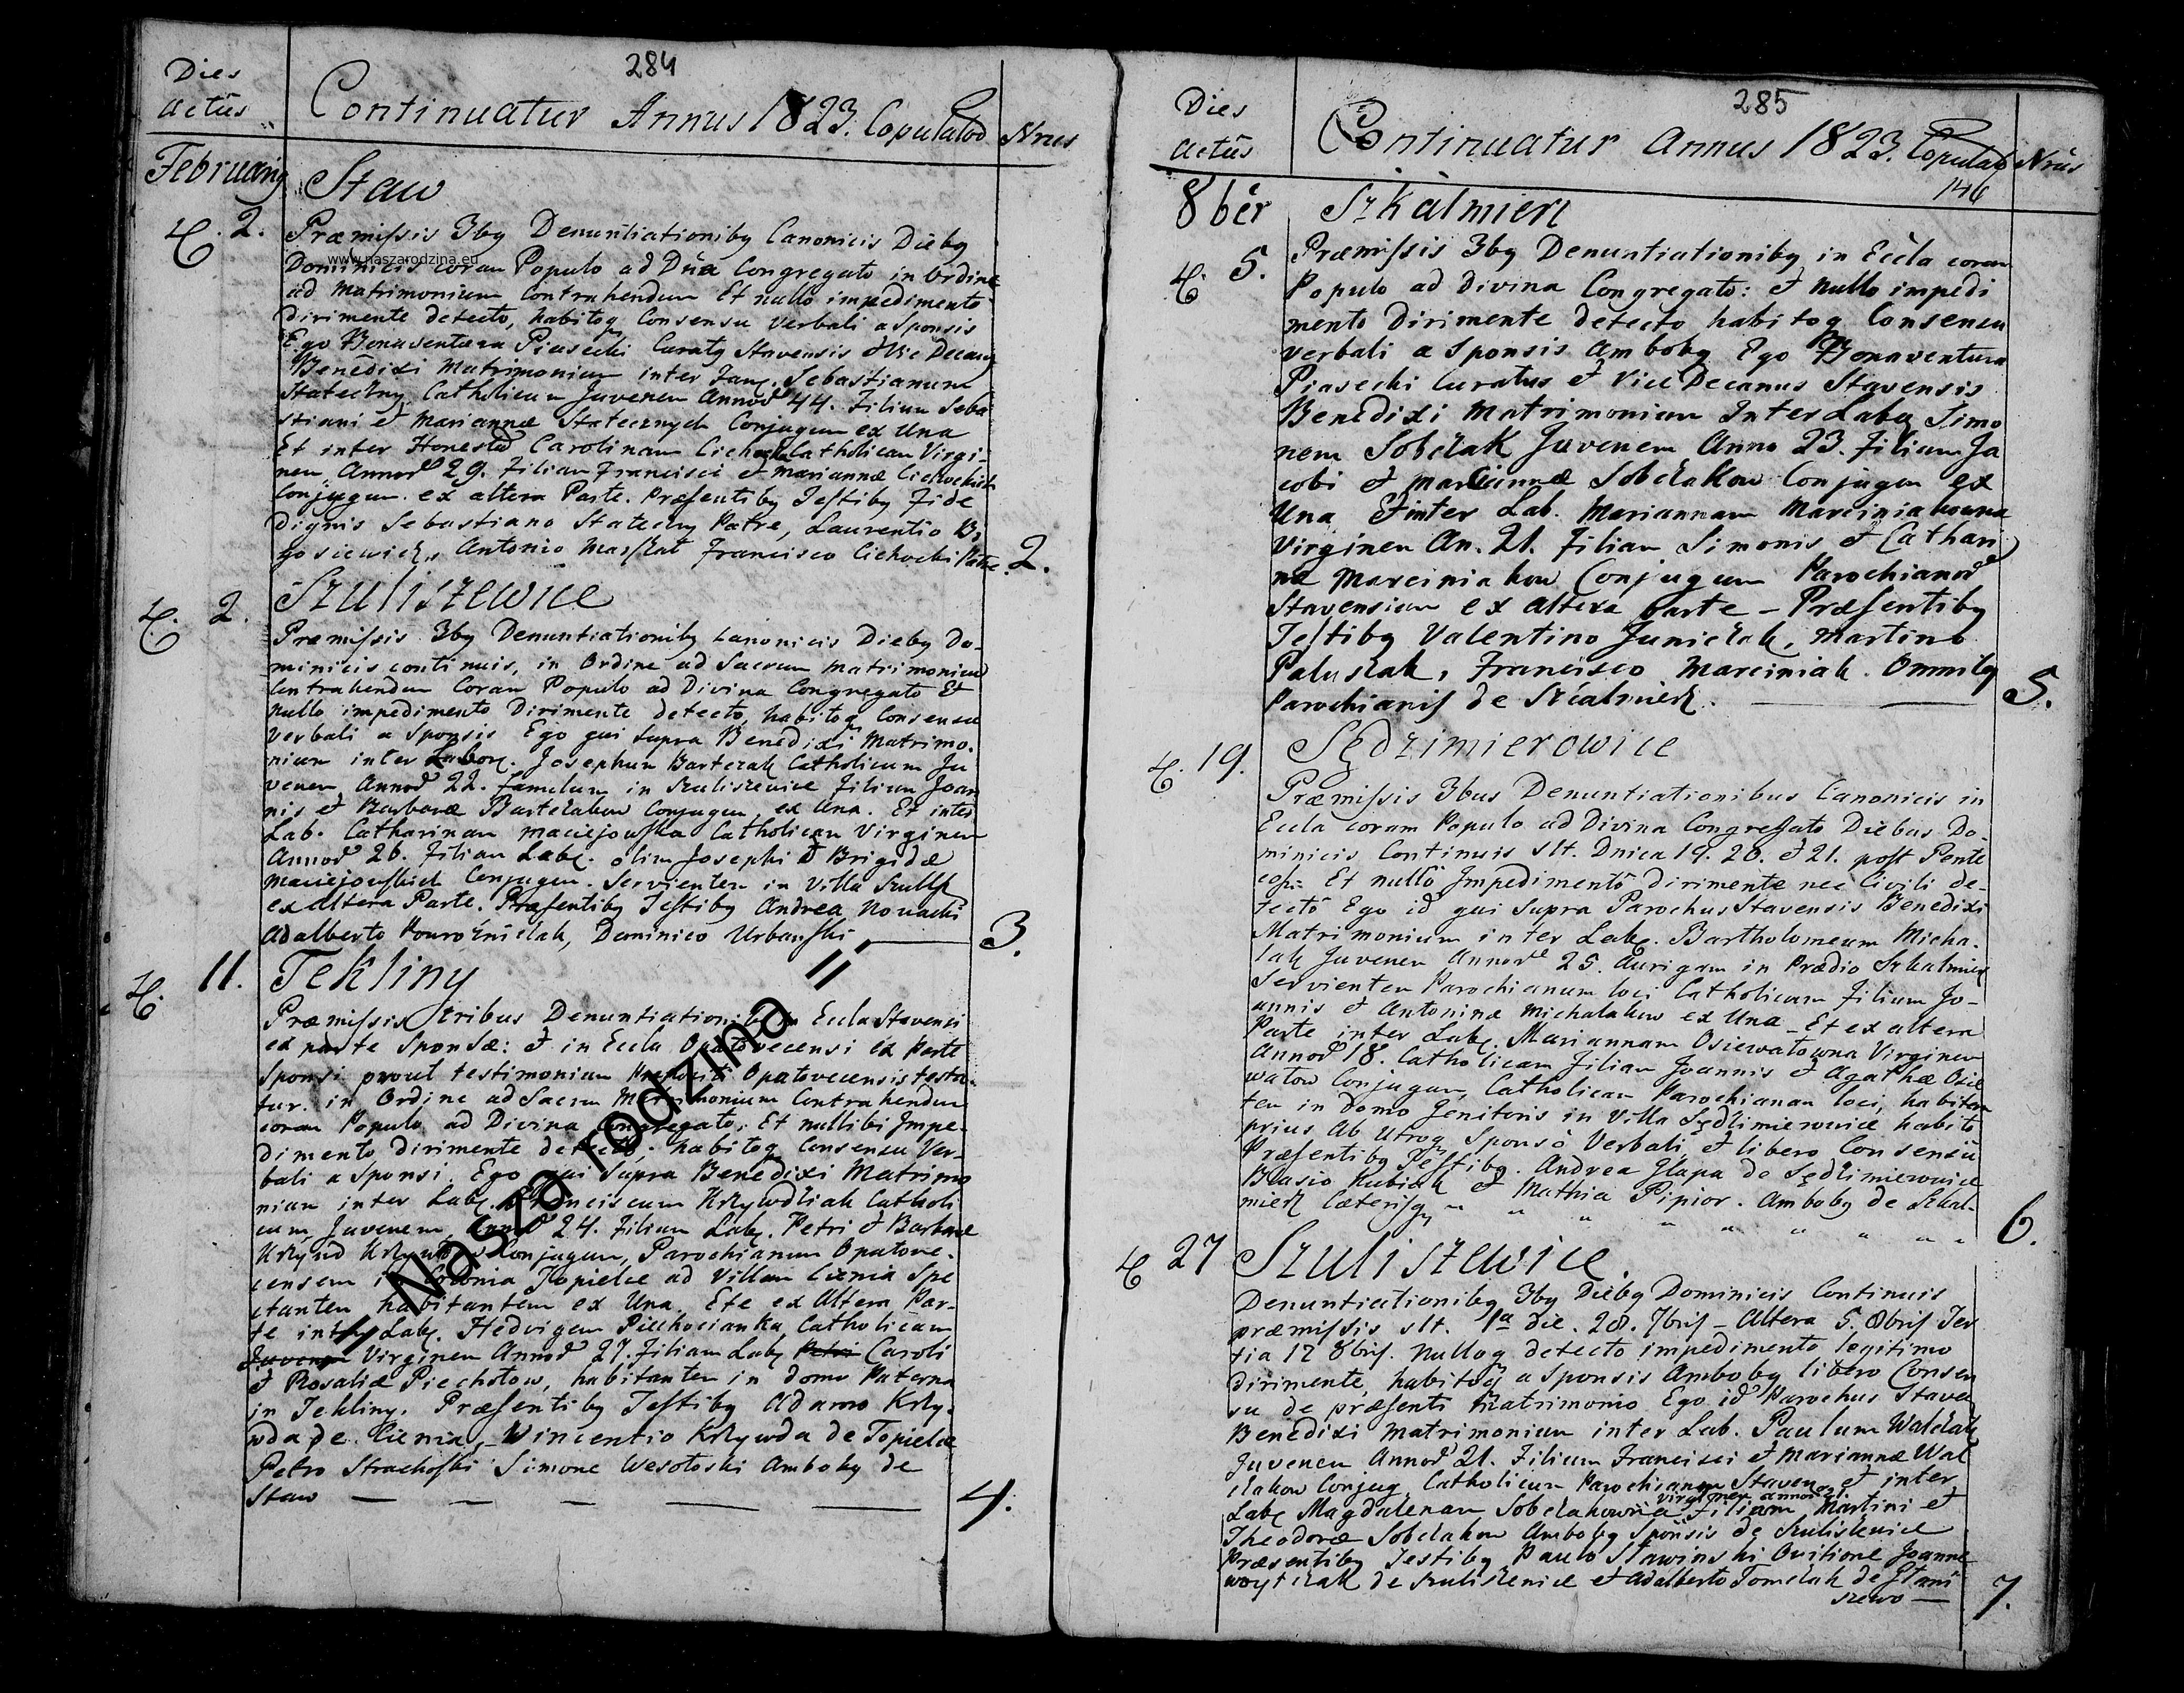 284
Dies
actūs
Continuatur Annus 1823. Copulatoꝝ Nrus
Februarij
Staw
2.
Præmissis 3bꝯ Denuntiationibꝯ Canonicis Diebꝯ
www.naszarodzina.eu
Dominicis coram Populo ad Dīna Congregato in Ordine
ad Matrimonium Contrahendum Et nullo impedimento
dirimente detecto, habitoq Consensu Verbali a Sponsis
Ego Bonaventura Piasecki Curatꝯ Stavensis & Vic Decanꝯ
Benedixi Matrimonium inter Sebastianum
Stateczny Catholicum Juvenem Annoꝝ 44. Filium Seba
stiani et Mariannæ Statecznych Conjugum ex Una
Et inter Honestā Carolinam Catholicam Virgi-
nem Annoꝝ 29. Filiam Francisci et Mariannæ Cichockich
Conjugum ex altera Parte. Præsentibꝯ Testibꝯ Fide
Dignis Sebastiano Stateczny Patre, Laurentio Bi
gosiewicz, Antonio Marszał Francisco Cichocki Patre
2.
Szuliszewice
2.
Præmissis 3bꝯ Denuntiationibꝯ Canonicis Diebꝯ Do-
minicis continuis, in Ordine ad Sacrum Matrimonium
Contrahendum Coram Populo ad Divina Congregato Et
nullo impedimento Dirimente detecto, habitoq Consensu
Verbali a Sponsis Ego qui Supra Benedixi Matrimo-
nium inter Labor. Josephum Bartczak Catholicum Ju
venem Annoꝝ 22. famulum in Szuliszewice Filium Joan
nis et Barbaræ Bartczakow Conjugum ex Una. Et inter
Lab. Catharinam Maciejowska Catholicam Virginem
Annoꝝ 26. Filiam Lab. olim Josephi & Brigidæ
Maciejowskich Conjugum. Servientem in Villa Szulisz
ex altera Parte. Præsentibꝯ Testibꝯ Andrea Nowacki
Adalberto Powroźniczak, Dominico Urbański
3.
11.
Tekliny
Præmissis tribus Denuntiationibꝯ in Eccla Stavensi
ex parte Sponsæ: et in Eccla Opatovecensi ex Parte
Sponsi prout testimonium Opatovecensis testa-
tur. in Ordine ad Sacrum Matrimonium Contrahendum
coram Populo ad Divina Congregato, Et nullibi Impe-
dimento dirimente detecto, habitoq Consensu Ver-
bali a Sponsi Ego qui Supra Benedixi Matrimo
nium inter Lab. Franciscum Krzywdziak Catholi
cum Juvenem Annoꝝ 24. Filium Lab. Petri & Barbaræ
Conjugum, Parochianum Opatove-
censem in Colonia Topielce ad Villam Cienia Spe
ctantem habitantem ex Una. Ete ex Altera Par-
te inter Lab. Hedvigem Piechocianka Catholicam
Juvenem Virginem Annoꝝ 27. Filiam Lab. Petri Caroli
& Rosaliæ Piechotow, habitantem in domo Paterna
in Tekliny. Præsentibꝯ Testibꝯ Adamo Krzy-
wda de Cienia, Wincentio Krzywda de Topielce
Petro Strachoski Simone Wesołoski Ambobꝯ de
Staw
4.
" Nasza rodzina "
285
Dies
actūs
Continuatur Annus 1823. Copulatoꝝ Nrūs
146
8bēr
Szkalmierz
5.
Præmissis 3bꝯ Denuntiationibꝯ in Eccla coram
Populo ad Divina Congregato: et nullo impedi
mento Dirimente detecto habitoq Consensu
verbali a Sponsis Ambobꝯ Ego Bonaventura
Piasecki Curatus et Vice Decanus Stavensis
Benedixi Matrimonium Inter Lab Simo
nem Sobczak Juvenem Anno 23. Filium Ja
cobi et Mariannæ Sobczakow Conjugum ex
Una Et inter Lab. Mariannam Marciniakowna
Virginem An. 21. Filiam Simonis et Cathari
næ Marciniakow Conjugum Parochianoꝝ
Stavensium ex altera parte – Præsentibꝯ
Testibꝯ Valentino Juniczak, Martino
Paluszak, Francisco Marciniak. Omnibꝯ
Parochianis de Szkalmierz.
5.
Sędzimierowice
19.
Præmissis 3bus Denuntiationibus Canonicis in
Eccla coram Populo ad Divina Congregato Diebus Do-
minicis Continuis slt. Dnica 19. 20. et 21. post Pente
cos: Et nullô Impedimentô dirimente nec Civili de-
tectô Ego id qui Supra Parochus Stavensis Benedixi
Matrimonium inter Lab. Bartholomeum Micha-
lak Juvenem Annoꝝ 25. Aurigam in Prædio Szkalmierz
Servientem Parochianum loci Catholicum Filium Jo-
annis et Antoninæ Michalakow ex Una – Et ex altera
Parte inter Lab. Mariannam Osiewatowna Virginem
Annoꝝ 18. Catholicam Filiam Joannis et Agathæ Osie
watow Conjugum, Catholicam Parochianam loci, habitan
tem in domo Genitoris in Villa Sędzimierowice habitô
prius ab Utroq Sponsô Verbali et libero Consensū
Præsentibꝯ Testibꝯ. Andrea Glapa de Sędzimierowice
Blasio Kubiak et Mathia Pipior. Ambobꝯ de Szkal-
mierz Cæterisq " " " " " " " "
6.
27
Szuliszewice.
Denuntiationibꝯ 3bꝯ Diebꝯ Dominicis Continuis
præmissis slt. 1a Die. 28. 7bris – Altera 5. 8bris Ter
tia 12 8bris. Nulloq detecto impedimento legitimo
dirimente, habitoq a Sponsis Ambobꝯ libero Consen
su de præsenti Matrimonio Ego id Parochus Staven
Benedixi Matrimonium inter Lab. Paulum Walczak
Juvenem Annoꝝ 21. Filium Francisci et Mariannæ Wal
czakow Conjug. Catholicum Parochianum Staven et inter
virginem annoꝝ
Lab Magdalenam Sobczakowna Filiam Martini et
Theodoræ Sobczakow Ambobꝯ Sponsis de Szuliszewice
Præsentibꝯ Testibꝯ Paulo Stawinski Ovilione Joanne
Woytczak de Szuliszewice et Adalberto Tomczak de Stani
szewo —
7.